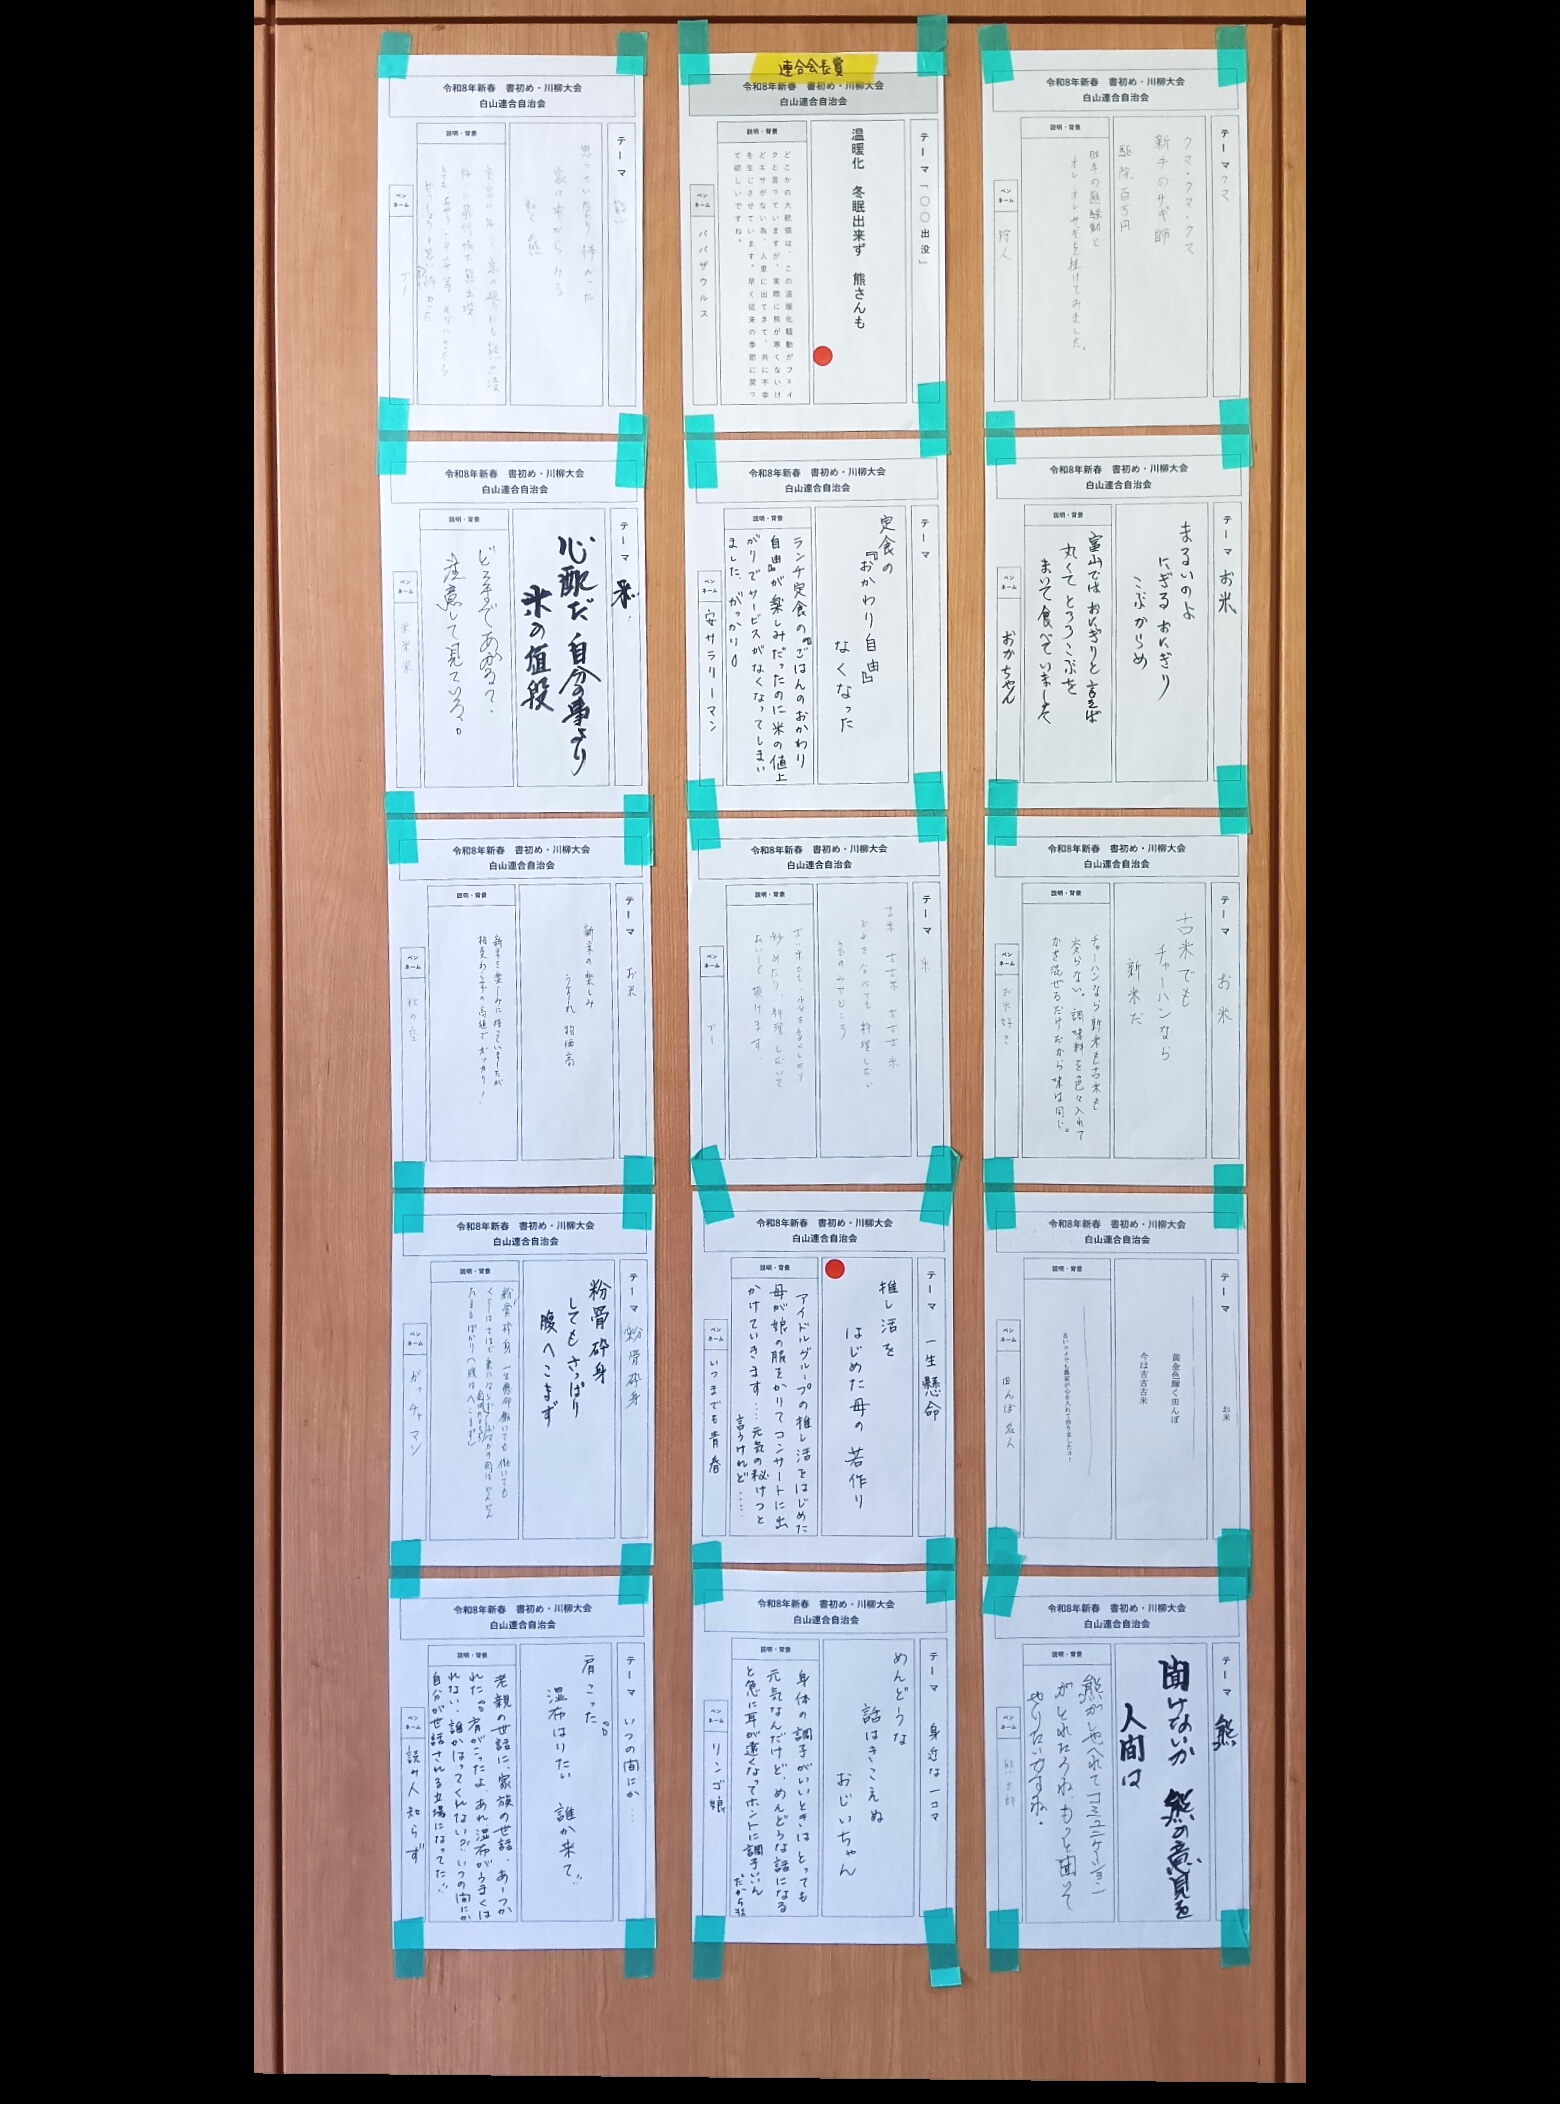 令和8年新春 書初め・川柳大会
白山連合自治会
テーマ クマ
クマ・クマ・クマ
新手のサギ師
駆除百万円
説明・背景
昨年の熊騒動と
オレオレサギを掛けてみました。
ペンネーム 狩人
連合会長賞
令和8年新春 書初め・川柳大会
白山連合自治会
テーマ「〇〇出没」
温暖化 冬眠出来ず 熊さんも
説明・背景
どこかの大統領は、この温暖化騒動がフェイ
クと言っていますが、実際に熊が寒くないけ
どエサがない為、人里に出てきて、共に不幸
を生じさせています。早く従来の季節に戻っ
て欲しいですね。
ペンネーム パパザウルス
令和8年新春 書初め・川柳大会
白山連合自治会
テーマ 熊
思っていたより怖かった
家の中からみる
動く熊
説明・背景
ペンネーム ブー
令和8年新春 書初め・川柳大会
白山連合自治会
テーマ お米
まるいのよ
にぎるおにぎり
こぶからめ
説明・背景
富山ではおにぎりと言えば
丸くてとろろこぶを
まいて食べていました
ペンネーム おかちゃん
令和8年新春 書初め・川柳大会
白山連合自治会
テーマ
定食の
『おかわり自由』
なくなった
説明・背景
ランチ定食の『ごはんのおかわり
自由』が楽しみだったのに米の値上
がりでサービスがなくなってしまい
ました。がっかり。
ペンネーム 安サラリーマン
令和8年新春 書初め・川柳大会
白山連合自治会
テーマ 米
心配だ 自分の事より
米の値段
説明・背景
どこまであがるて、
注意して見ている。
ペンネーム 米米米
令和8年新春 書初め・川柳大会
白山連合自治会
テーマ お米
古米でも
チャーハンなら
新米だ
説明・背景
チャーハンなら新米も古米も
変らない。調味料を色々入れて
かき混ぜるだけだから味は同じ。
ペンネーム お米好き
令和8年新春 書初め・川柳大会
白山連合自治会
テーマ 米
古米 古古米 古古古米
説明・背景
炒めたり、料理しだいで
おいしく頂けます。
ペンネーム ブー
令和8年新春 書初め・川柳大会
白山連合自治会
テーマ お米
新米の楽しみ
うすれ 物価高
説明・背景
新米を楽しみに待っていましたが
相変わらずの高値でガッカリ!
ペンネーム 秋の空
令和8年新春 書初め・川柳大会
白山連合自治会
テーマ お米
黄金色輝く田んぼ
今は古古古米
説明・背景
古いコメでも農家が心を入れて作りましたヨー
ペンネーム 田んぼ名人
令和8年新春 書初め・川柳大会
白山連合自治会
テーマ 一生懸命
推し活を
はじめた母の 若作り
説明・背景
アイドルグループの推し活をはじめた
母が娘の服をかりてコンサートに出
かけていきます…。元気の秘けつと
言うけれど……
ペンネーム いつまでも青春
令和8年新春 書初め・川柳大会
白山連合自治会
テーマ 粉骨砕身
粉骨砕身
してもさっぱり
腹へこまず
説明・背景
粉骨砕身、一生懸命働いても働いても
ペンネーム ガッチャマン
令和8年新春 書初め・川柳大会
白山連合自治会
テーマ 熊
聞けないか 熊の意見を
人間は
説明・背景
熊がしゃべれてコミュニケーション
がとれたらね、もっと聞いて
やりたいですね。
ペンネーム
令和8年新春 書初め・川柳大会
白山連合自治会
テーマ 身近な一コマ
めんどうな
話はきこえぬ
おじいちゃん
説明・背景
身体の調子がいいときはとっても
元気なんだけど、めんどうな話になる
と急に耳が遠くなってホントに調子いいん
だから
ペンネーム リンゴ娘
令和8年新春 書初め・川柳大会
白山連合自治会
テーマ いつの間にか…
肩こった。
湿布はりたい 誰か来て!!
説明・背景
老親の世話に、家族の世話、あーつか
れた。肩がこったよ、あれ湿布がうまくは
れない。誰かはってくれない?いつの間にか
自分が世話される立場になってた!!
ペンネーム 読み人知らず